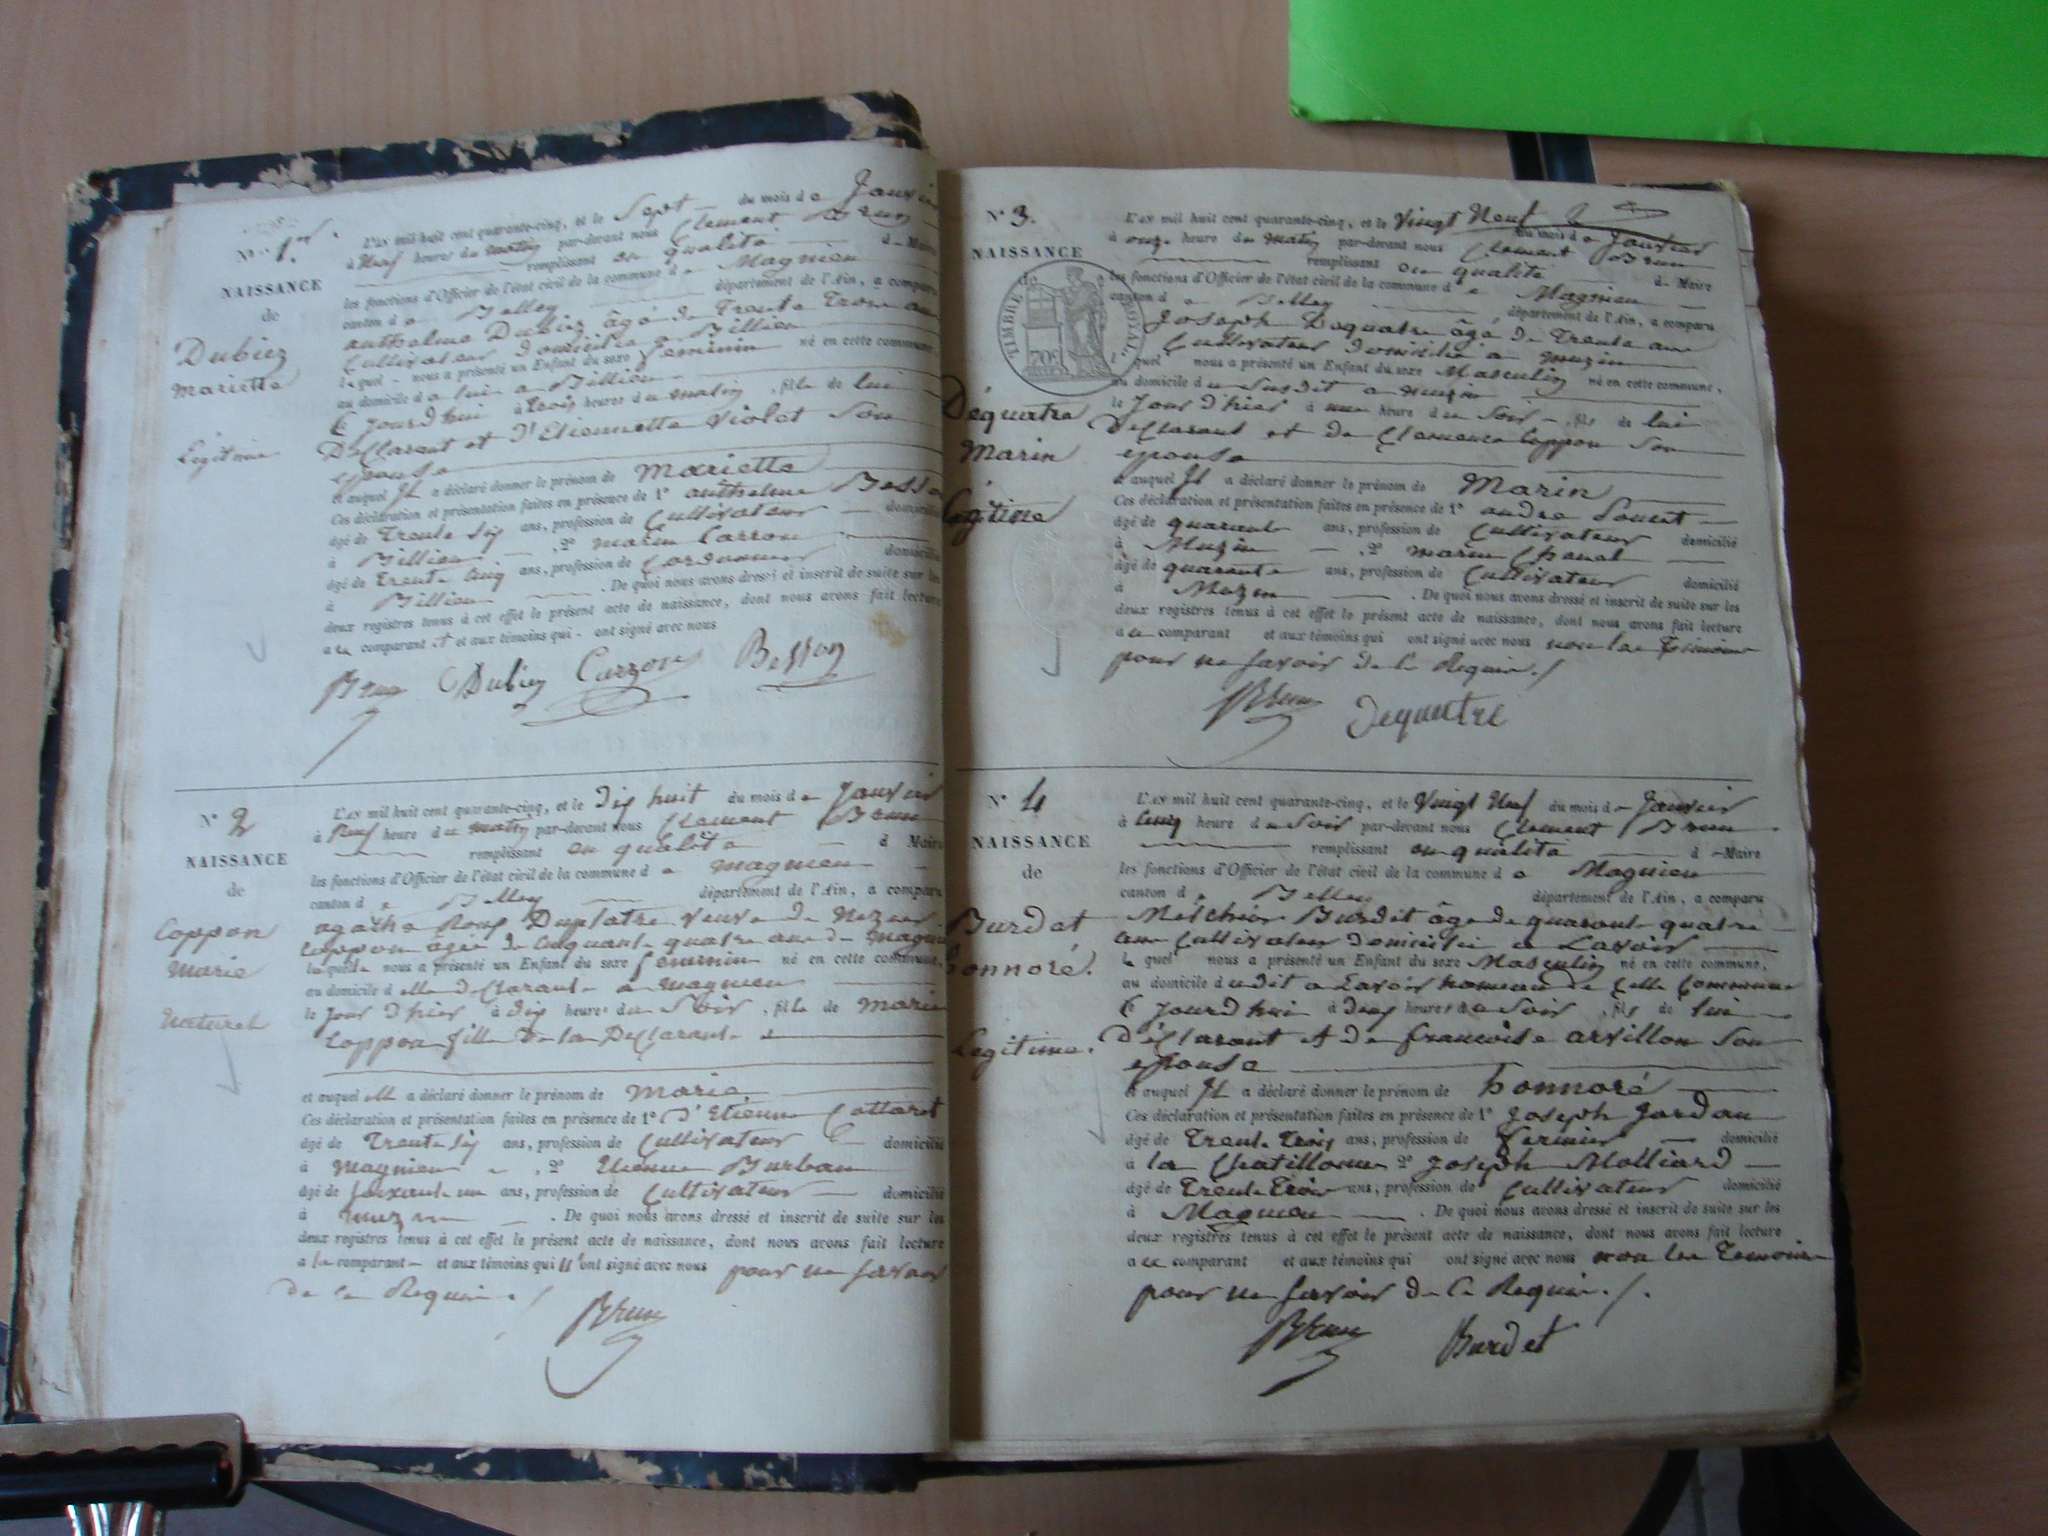 N° 1er
NAISSANCE
de
Dubiez
Mariette
Légitime
L'an mil huit cent quarante-cinq, et le Sept du mois de Janvier
à Neuf heures du matin par-devant nous Clement Brun
remplissant en qualité de Maire
les fonctions d'Officier de l'état civil de la commune de Magnieu
canton de Belley département de l'Ain, a comparu
anthelme Dubiez âgé de Trente Trois ans
Cultivateur domicilié a Billieu
lequel nous a présenté un Enfant du sexe feminin né en cette commune,
au domicile de lui a Billieu
Ce jourd'hui à trois heures du matin, fille de lui
Declarant et d'Etiennette Violet Son
epouse
et auquel Il a déclaré donner le prénom de Mariette
Ces déclaration et présentation faites en présence de 1° anthelme Besson
âgé de trente six ans, profession de Cultivateur domicilié
à Billieu, 2° marin Carron
âgé de trente Cinq ans, profession de Cordonnier domicilié
à Billieu. De quoi nous avons dressé et inscrit de suite sur les
deux registres tenus à cet effet le présent acte de naissance, dont nous avons fait lecture
au comparant et et aux témoins qui ont signé avec nous
Brun Dubiez Carron Besson
N° 2
NAISSANCE
de
Coppon
Marie
Naturel
L'an mil huit cent quarante-cinq, et le Dix huit du mois de Janvier
à Neuf heure du matin par-devant nous Clement Brun
remplissant en qualité de Maire
les fonctions d'Officier de l'état civil de la commune de magnieu
canton de Belley département de l'Ain, a comparu
agathe Duplatre Veuve de
Coppon âgée de Cinquante quatre ans de magnieu
laquelle nous a présenté un Enfant du sexe feminin né en cette commune,
au domicile d'elle declarante a magnieu
le Jour d'hier à dix heures du Soir, fille de Marie
Coppon fille de la Declarante
et auquel elle a déclaré donner le prénom de Marie
Ces déclaration et présentation faites en présence de 1° d'Etienne Cottaret
âgé de Trente Six ans, profession de Cultivateur domicilié
à Magnieu, 2° Etienne Burban
âgé de Soixante un ans, profession de Cultivateur domicilié
à muzin. De quoi nous avons dressé et inscrit de suite sur les
deux registres tenus à cet effet le présent acte de naissance, dont nous avons fait lecture
a la comparante et aux témoins qui n'ont signé avec nous pour ne Savoir
de ce Requis ./
Brun
N° 3.
NAISSANCE
de
TIMBRE ROYAL
70c
Déquatre
Marin
Légitime
L'an mil huit cent quarante-cinq, et le Vingt Neuf du mois de Janvier
à onze heure du matin par-devant nous Clement Brun
remplissant en qualité de Maire
les fonctions d'Officier de l'état civil de la commune de Magnieu
canton de Belley département de l'Ain, a comparu
Joseph Dequatre âgé de Trente ans
Cultivateur domicilié a muzin
lequel nous a présenté un Enfant du sexe Masculin né en cette commune,
au domicile du Susdit a muzin
le Jour d'hier à une heure du Soir, fils de lui
Declarant et de Clemence Coppon Son
epouse
et auquel Il a déclaré donner le prénom de Marin
Ces déclaration et présentation faites en présence de 1° andre
âgé de quarante ans, profession de Cultivateur domicilié
à Muzin, 2° marin
âgé de quarante ans, profession de Cultivateur domicilié
à Muzin. De quoi nous avons dressé et inscrit de suite sur les
deux registres tenus à cet effet le présent acte de naissance, dont nous avons fait lecture
au comparant et aux témoins qui ont signé avec nous non les Temoins
pour ne Savoir de ce Requis ./
Brun Dequatre
N° 4
NAISSANCE
de
Burdet
honnoré.
Légitime.
L'an mil huit cent quarante-cinq, et le Vingt Neuf du mois de Janvier
à Cinq heure du Soir par-devant nous Clement Brun
remplissant en qualité de Maire
les fonctions d'Officier de l'état civil de la commune de Magnieu
canton de Belley département de l'Ain, a comparu
Melchior Burdet âgé de quarante quatre
ans Cultivateur domicilié a Lavoir
lequel nous a présenté un Enfant du sexe Masculin né en cette commune,
au domicile dudit a Lavoir hameau de Cette Commune
Ce jourd'hui à deux heures du Soir, fils de lui
Déclarant et de françoise arvillon Son
epouse
et auquel Il a déclaré donner le prénom de honnoré
Ces déclaration et présentation faites en présence de 1° Joseph Jordan
âgé de Trente trois ans, profession de fermier domicilié
à la Chatillonne 2° Joseph Molliard
âgé de Trente Trois ans, profession de Cultivateur domicilié
à Magnieu. De quoi nous avons dressé et inscrit de suite sur les
deux registres tenus à cet effet le présent acte de naissance, dont nous avons fait lecture
au comparant et aux témoins qui ont signé avec nous non les Temoins
pour ne Savoir de ce Requis ./.
Brun Burdet